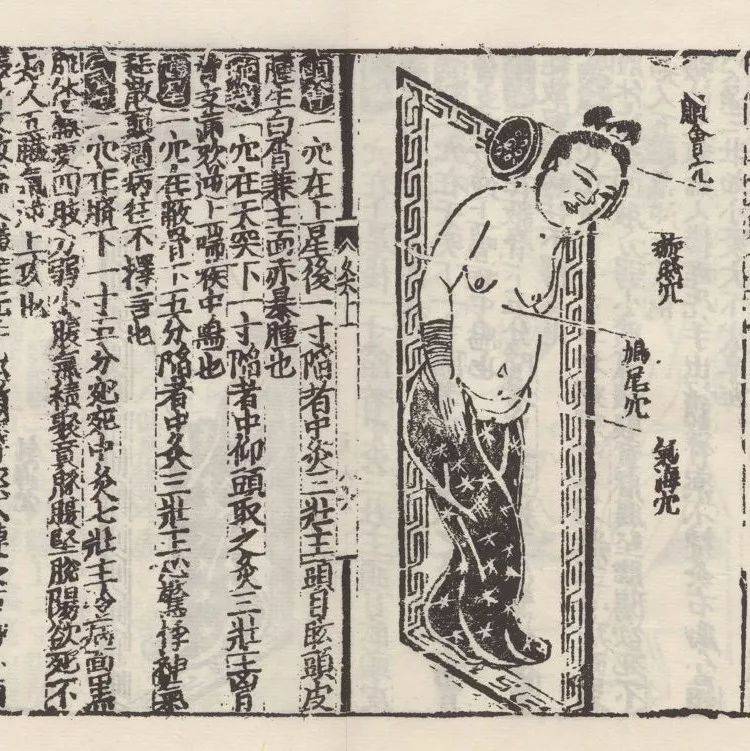 顖會穴
璇璣穴
鳩尾穴
氣海穴
顖會一穴在上星後一寸陷者中灸三壯主頭目眩頭皮
腫生白屑兼主面赤暴腫也
璇璣一穴在天突下一寸陷者中仰頭取之灸三壯主胷
脅支滿欬逆上喘喉中鳴也
鳩尾一穴在蔽骨下五分陷者中灸三壯主心驚悸神氣
耗散癲癇病狂不擇言也
氣海一穴在臍下一寸五分宛宛中灸七壯主冷病面黑
肌体羸瘦四肢力弱小腹氣積聚賁豚腹堅脫陽欲死不
知人五臟氣逆上攻也